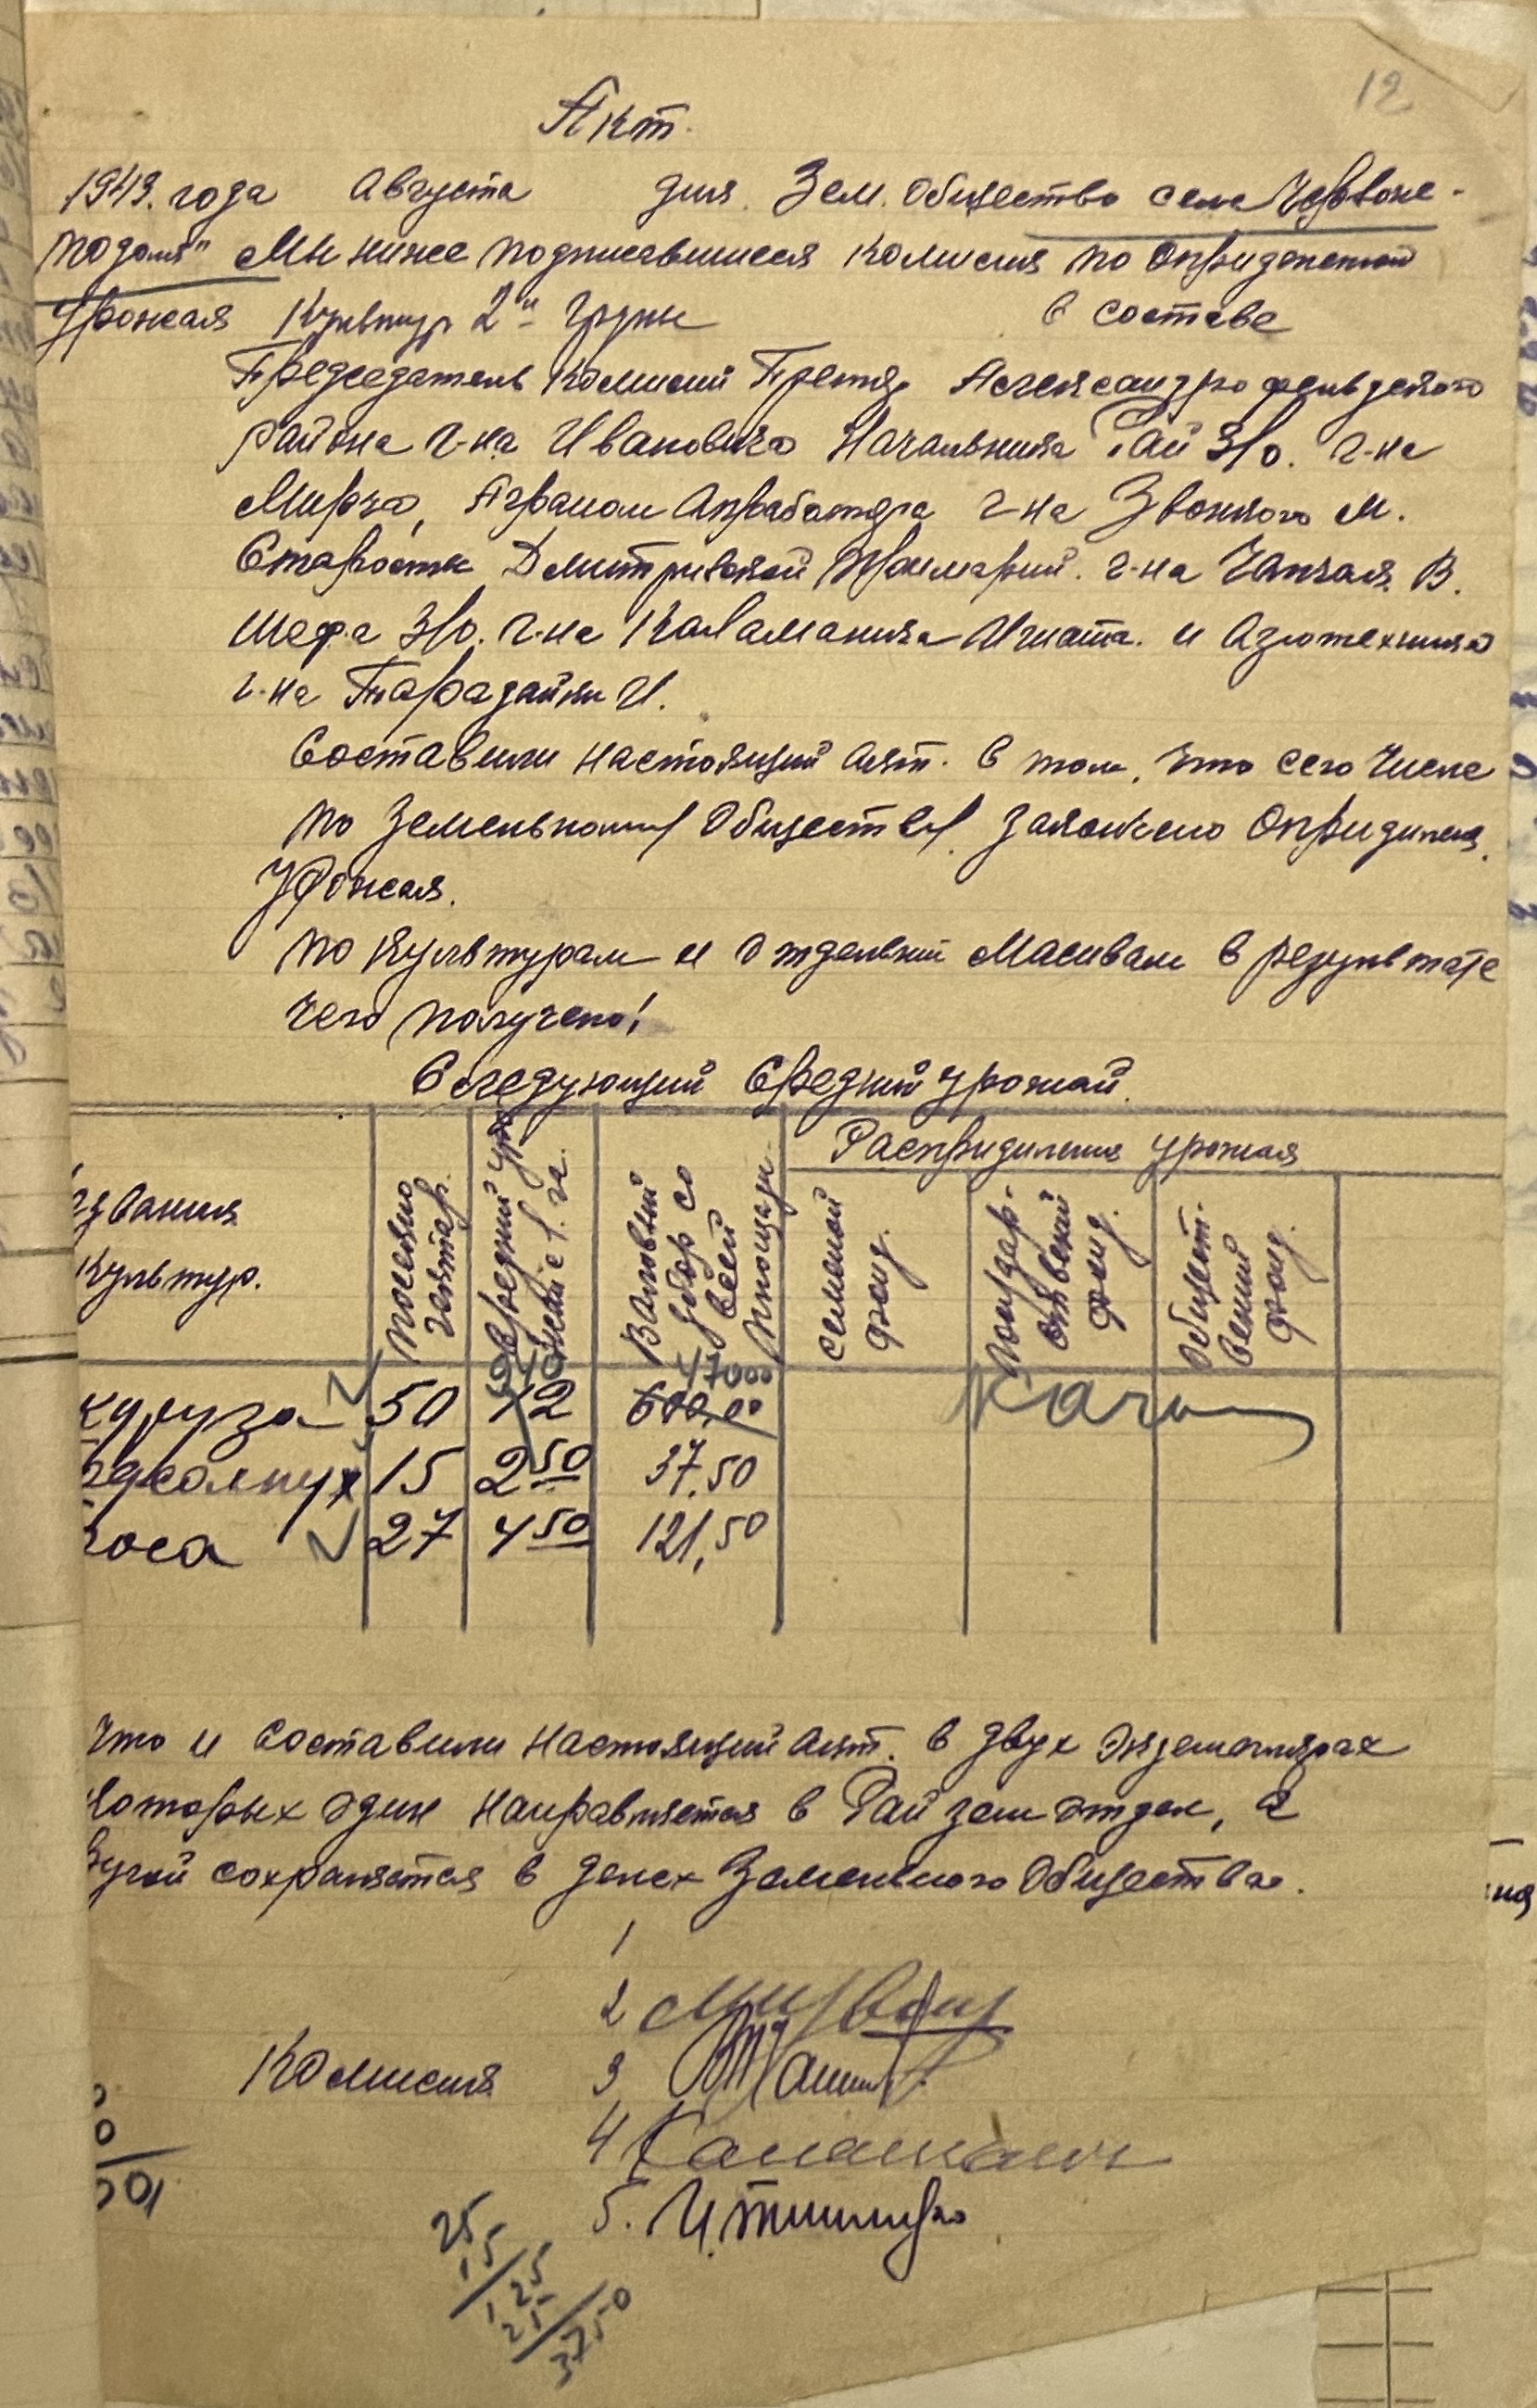 12
Акт.
1943. года Августа дня. Зем. Общество села Червоне-
подоля" Мы ниже подписавшиеся Комисия по Опридилению
Урожая Культур 2й Групы в составе
Председатель Комисии Претор Александрофельдского
района г-на Ивановича Начальника Рай З/о. г-на
Мирча, Аграном г-на Звонкого М.
Старосты Дмитриевской Примарии. г-на В.
Шефа З/о. г-на Каламаника Игната. и Агротехника
г-на Тарадайки И.
Составили настоящий акт. в том, что сего Числа
по Земельному Обществу заложено Опридиления
Урожая.
по Культурам и отдельным Масивам в результате
чего получено!
Следующий Средний урожай.
звания
Культур.
Посеяно
гектар.
Средний уро
жай с 1. га.
Валовый
сбор со
всей
площади
Распридиления урожая
Семеной
фонд.
Государ-
ственый
фонд.
Общест-
веный
фонд.
куруза 50 12 940 600,00 47000
дсолнух 15 2 50 37,50
роса 27 4 50 121,50
Что и составили настоящий акт. в двух экземплярах
которых один направляется в Рай зем отдел, а
ругой сохраняется в делах Земельного Общества.
Комисия
1
2
3
4 Каламаник
5.
25
15
125
25
3750